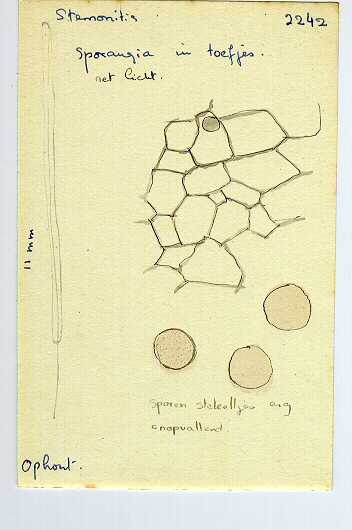 Stemonitis 2242
Sporangia in toefjes.
net licht.
11 mm
Sporen stekeltjes erg
onopvallend.
Ophont.